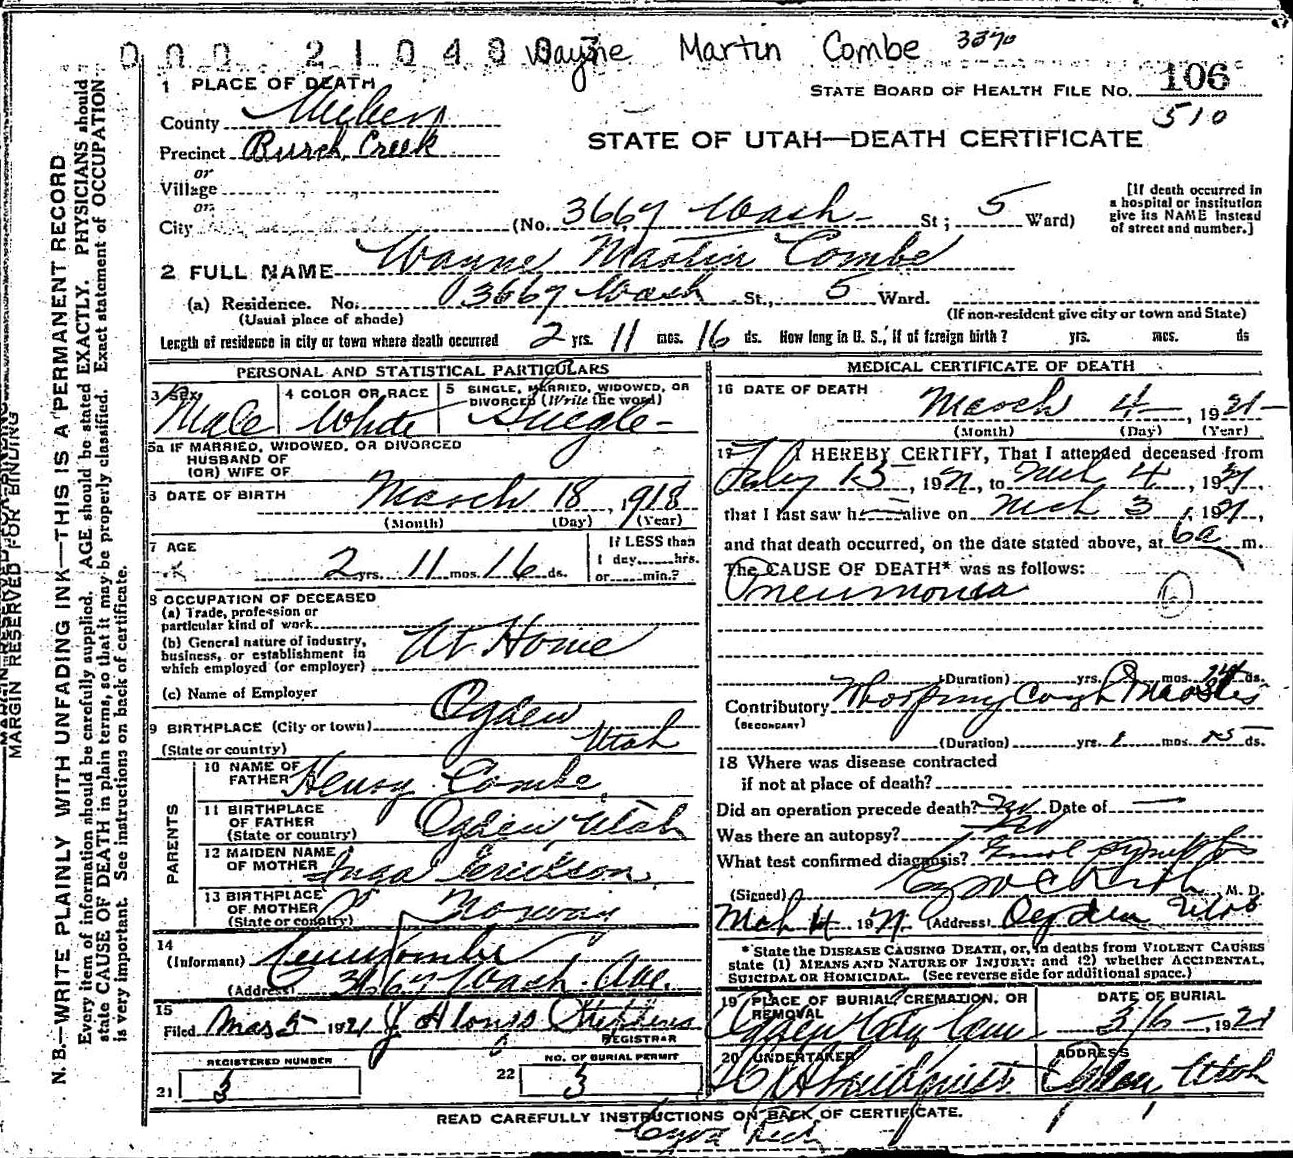 000 210480 Wayne Martin Combe 3370
1 PLACE OF DEATH
STATE BOARD OF HEALTH FILE NO. 106
510
County Weber
STATE OF UTAH—DEATH CERTIFICATE
Precinct Burch Creek
or
Village
or
City (No. 3667 Wash St; 5 Ward)
[If death occurred in a hospital or institution give its NAME instead of street and number.]
2 FULL NAME Wayne Martin Combe
(a) Residence. No. 3667 Wash St., 5 Ward.
(Usual place of abode)
(If non-resident give city or town and State)
Length of residence in city or town where death occurred 2 yrs. 11 mos. 16 ds. How long in U. S., if of foreign birth? yrs. mos. ds
PERSONAL AND STATISTICAL PARTICULARS
3 SEX Male
4 COLOR OR RACE White
5 SINGLE, MARRIED, WIDOWED, OR DIVORCED (Write the word) Single
5a IF MARRIED, WIDOWED, OR DIVORCED
HUSBAND OF
(OR) WIFE OF
6 DATE OF BIRTH March 18, 1918
(Month) (Day) (Year)
7 AGE
2 yrs. 11 mos. 16 ds.
If LESS than
1 day, hrs.
or min.?
8 OCCUPATION OF DECEASED
(a) Trade, profession or
particular kind of work
(b) General nature of industry,
business, or establishment in
which employed (or employer) At Home
(c) Name of Employer
9 BIRTHPLACE (City or town) Ogden
(State or country) Utah
PARENTS
10 NAME OF
FATHER Henry Combe
11 BIRTHPLACE
OF FATHER
(State or country) Ogden Utah
12 MAIDEN NAME
OF MOTHER Inga Erickson
13 BIRTHPLACE
OF MOTHER
(State or country) Norway
14
(Informant) Combe
(Address) 3667 Wash. Ave.
15
Filed Mar 5 1921 J Alonzo Stephens
REGISTRAR
REGISTERED NUMBER
21 3
NO. OF BURIAL PERMIT
22 3
MEDICAL CERTIFICATE OF DEATH
16 DATE OF DEATH
March 4, 1921
(Month) (Day) (Year)
17 I HEREBY CERTIFY, That I attended deceased from
Feby 13, 1921, to Mch 4, 1921,
that I last saw h alive on Mch 3, 1921,
and that death occurred, on the date stated above, at 6a m.
The CAUSE OF DEATH* was as follows:
Pneumonia
(Duration) yrs. mos. ds.
Contributory Whooping Cough Measles
(SECONDARY)
(Duration) yrs. 1 mos. 15 ds.
18 Where was disease contracted
if not at place of death?
Did an operation precede death? No Date of —
Was there an autopsy? No
What test confirmed diagnosis?
(Signed) M. D.
Mch 4 1921 (Address) Ogden Utah
* State the DISEASE CAUSING DEATH, or, in deaths from VIOLENT CAUSES
state (1) MEANS AND NATURE OF INJURY; and (2) whether ACCIDENTAL,
SUICIDAL OR HOMICIDAL. (See reverse side for additional space.)
19 PLACE OF BURIAL, CREMATION, OR
REMOVAL
Ogden City Cem
DATE OF BURIAL
3/6, 1921
20 UNDERTAKER
ADDRESS
Ogden, Utah
READ CAREFULLY INSTRUCTIONS ON BACK OF CERTIFICATE.
MARGIN RESERVED FOR BINDING
N. B.—WRITE PLAINLY WITH UNFADING INK—THIS IS A PERMANENT RECORD
Every item of information should be carefully supplied. AGE should be stated EXACTLY. PHYSICIANS should
state CAUSE OF DEATH in plain terms, so that it may be properly classified. Exact statement of OCCUPATION
is very important. See instructions on back of certificate.